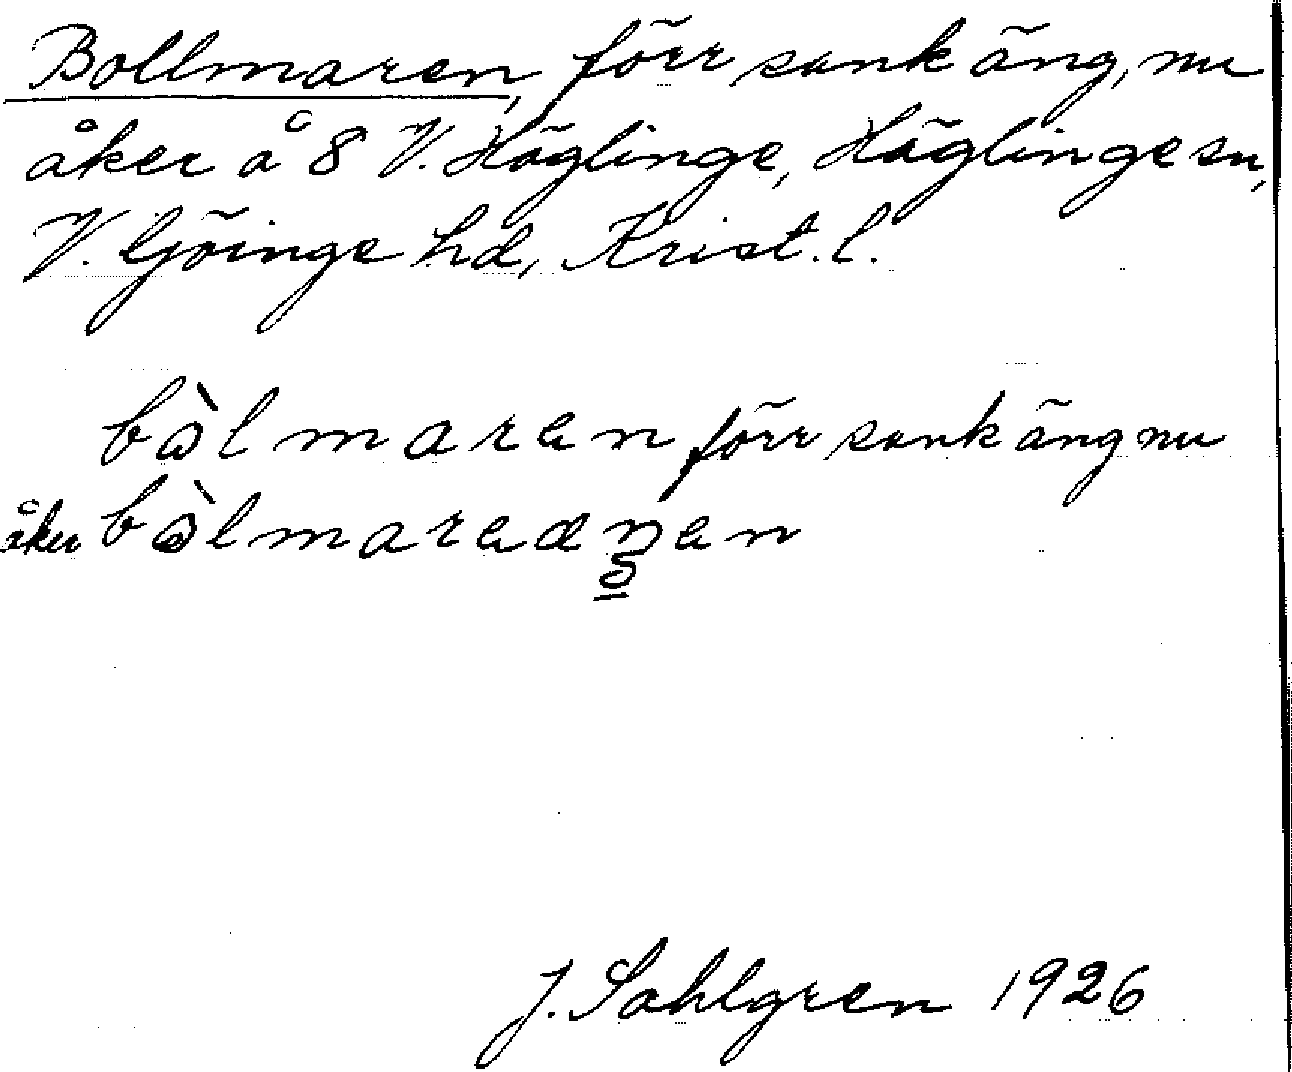 Bollmaren, förr sank äng, nu
åker å 8 V. Häglinge, Häglinge sn,
V. Göinge hd, Krist. l.
bòlmaren förr sank äng nu
åker bòlmarednen
J. Sahlgren 1926